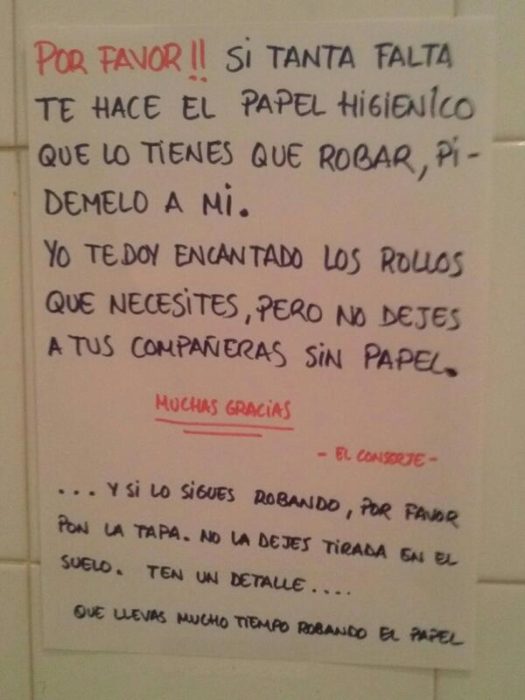 POR FAVOR!! SI TANTA FALTA
TE HACE EL PAPEL HIGIENICO
QUE LO TIENES QUE ROBAR, PÍ-
DEMELO A MI.
YO TE DOY ENCANTADO LOS ROLLOS
QUE NECESITES, PERO NO DEJES
A TUS COMPAÑERAS SIN PAPEL.
MUCHAS GRACIAS
- EL CONSERJE -
... Y SI LO SIGUES ROBANDO, POR FAVOR
PON LA TAPA. NO LA DEJES TIRADA EN EL
SUELO. TEN UN DETALLE....
QUE LLEVAS MUCHO TIEMPO ROBANDO EL PAPEL